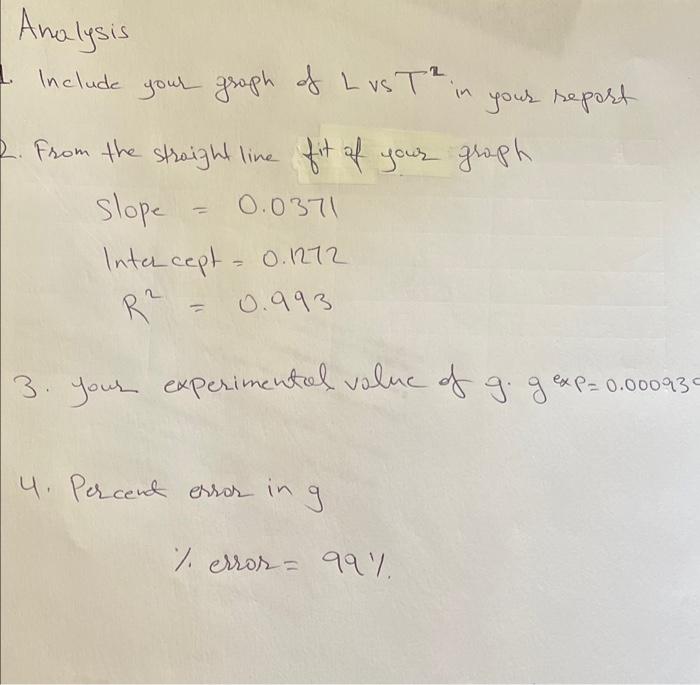 Analysis
1. Include your graph of L vs T² in your report
2. From the straight line fit of your graph
Slope = 0.0371
Intercept = 0.1272
R² = 0.993
3. your experimental value of g. g exp = 0.00093
4. Percent error in g
% error = 99%.